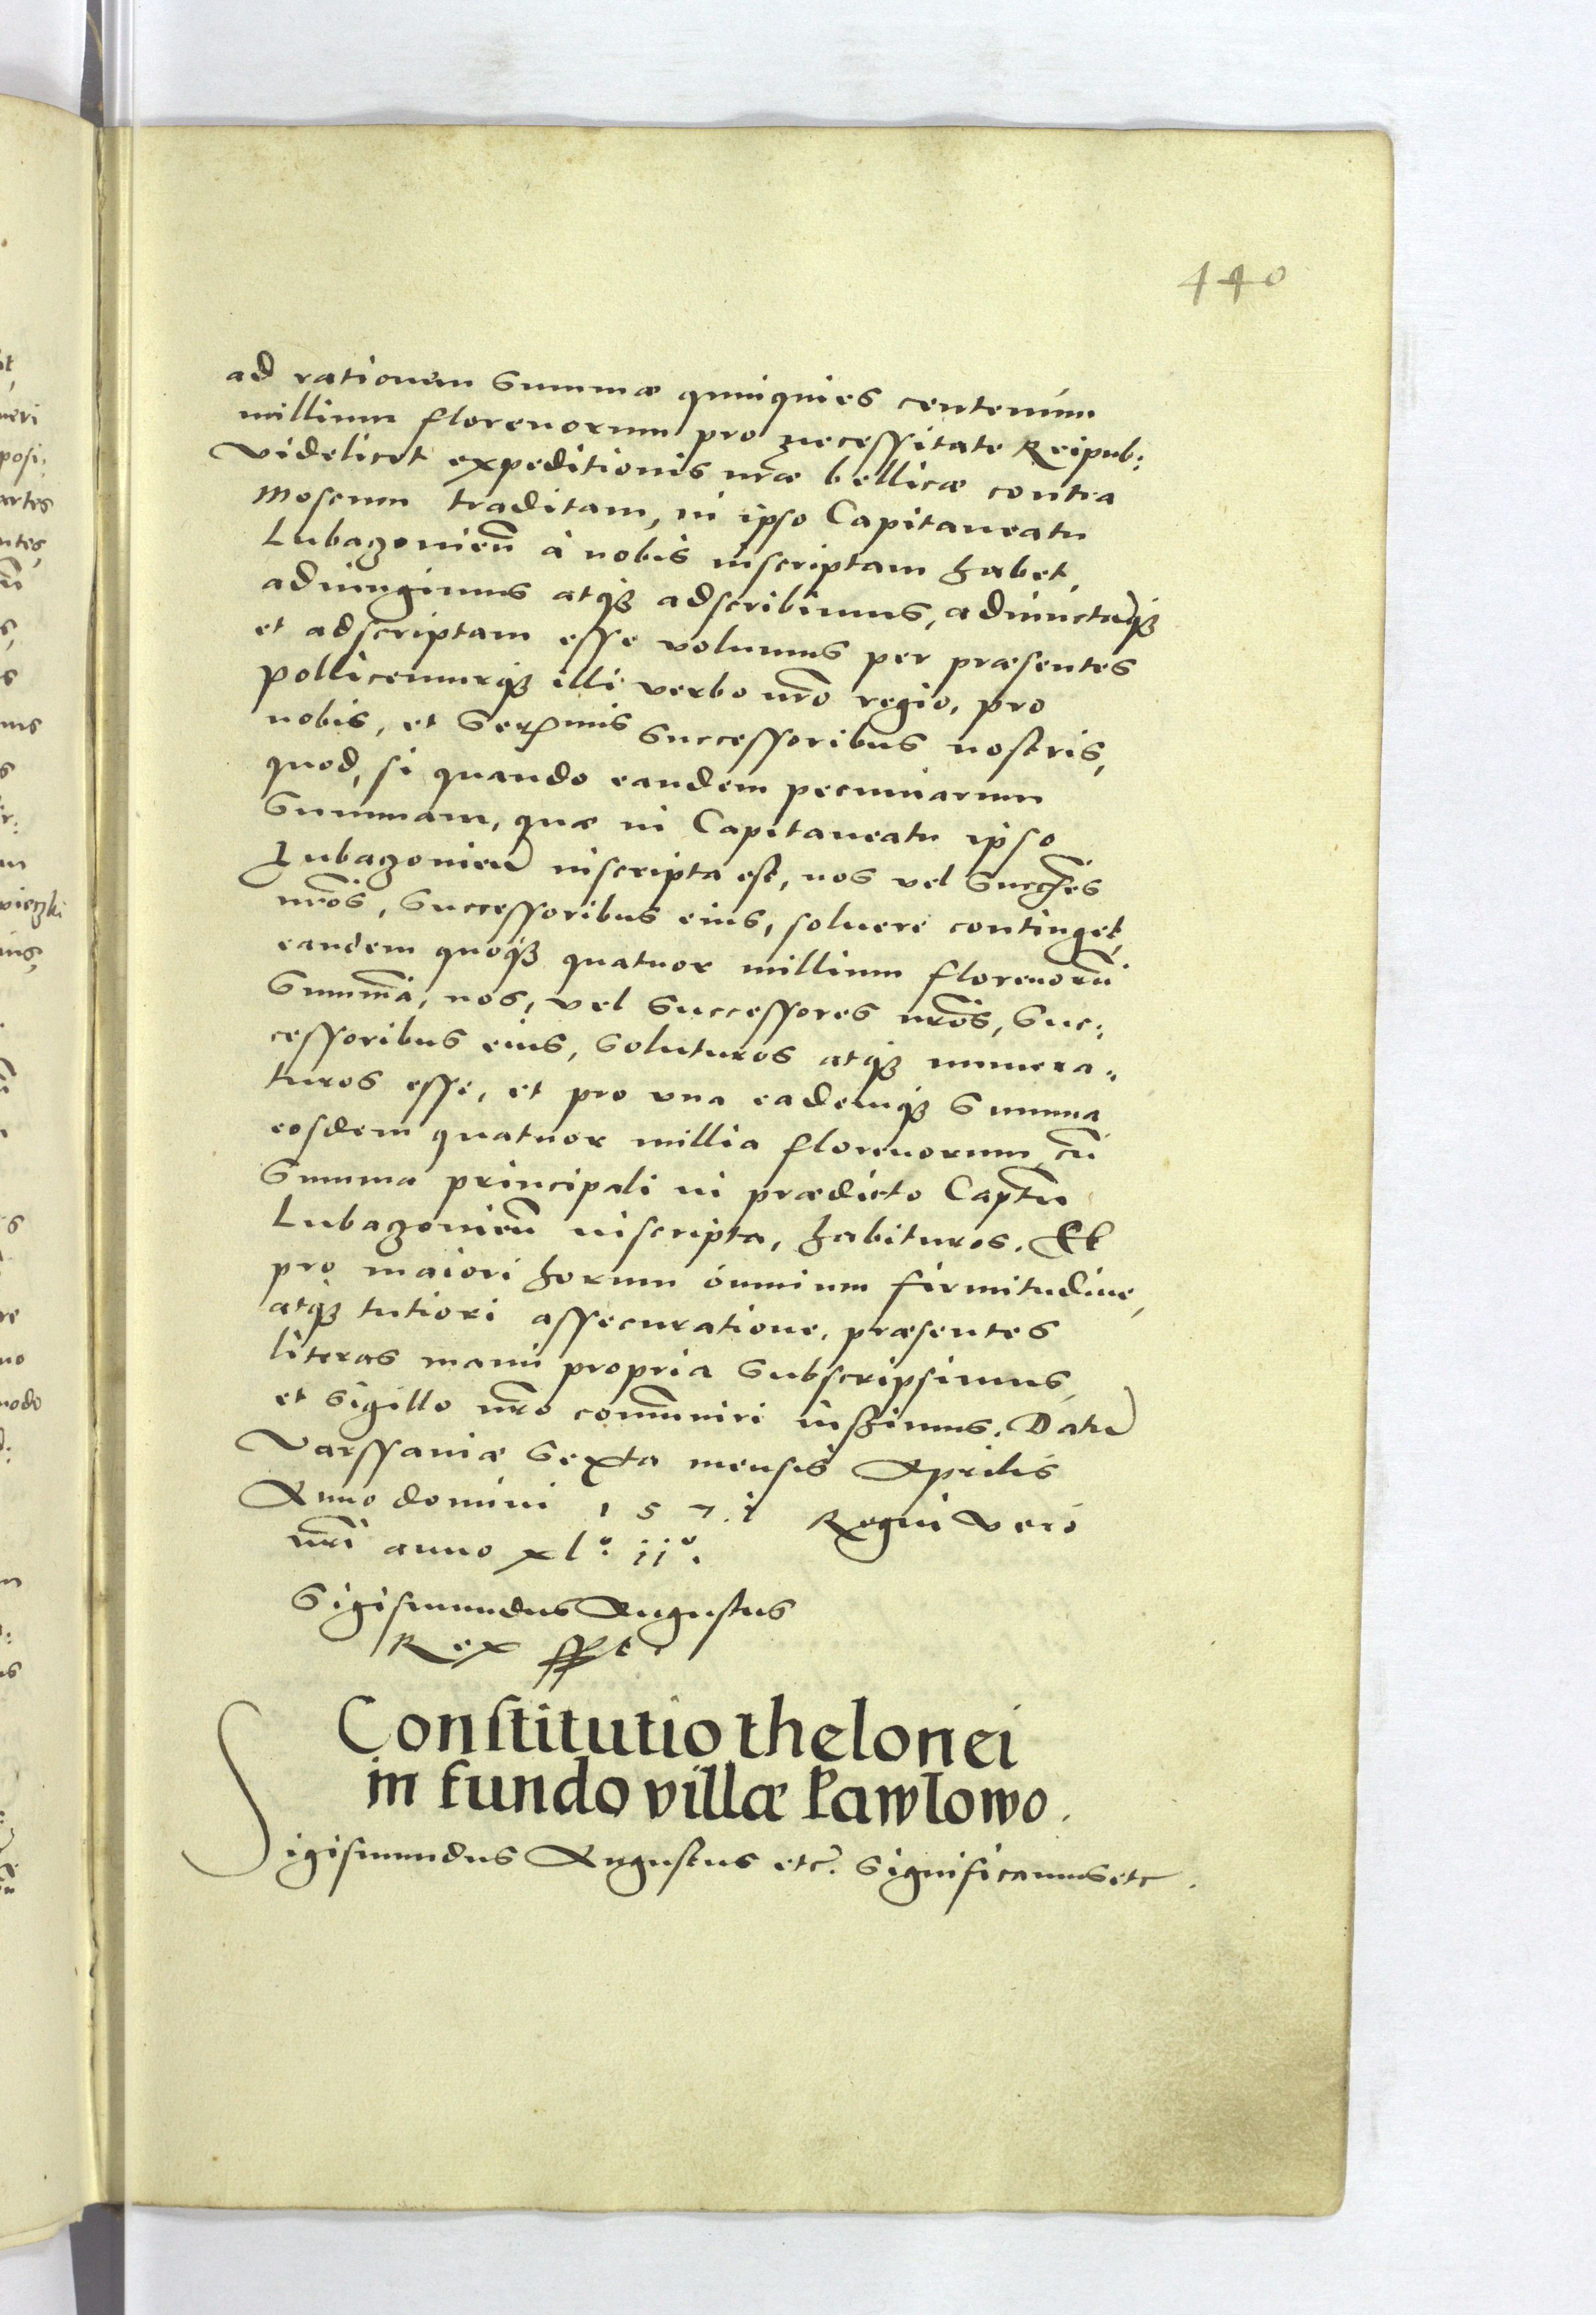 440
ad rationem Summæ quinquies centenum
millium florenorum pro necessitate Reipub:
videlicet expeditionis nr̃æ bellicæ contra
Moscum traditam, in ipso Capitaneatu
Lubaczouieñ à nobis inscriptam habet,
adiungimus atqꝫ adscribimus, adiunctãqꝫ
et adscriptam esse volumus per præsentes
pollicemurqꝫ illi verbo nr̃o regio, pro
nobis, et Serꝫmis Successoribus nostris,
quod, si quando eandem pecuniarum
Summam, quæ in Capitaneatu ipso
Lubaczouieñ inscripta est, nos vel Succẽs
nr̃os, Successoribus eius, soluere continget,
eandem quoqꝫ quatuor millium florenorũ
Summã, nos, vel Successores nr̃os, Suc:
cessoribus eius, Soluturos atqꝫ numera:
turos esse, et pro vna eademqꝫ Summa
eosdem quatuor millia florenorum cũ
Summa principali in prædicto Captũ
Lubaczouieñ inscripta, habituros. Et
pro maiori horum omnium firmitudine,
atqꝫ tutiori assecuratione, præsentes
literas manu propria Subscripsimus,
et Sigillo nr̃o com̃uniri iussimus. Datũ
Varssauiæ Sexta mensis Aprilis
Anno domini 1571 Regni vero
nr̃i anno xl.º ijº.
Sigismundus Augustus
Rex sst
Constitutio thelonei
in fundo villæ Pawlowo.
Sigismundus Augustus etc̃. Significamus etc.